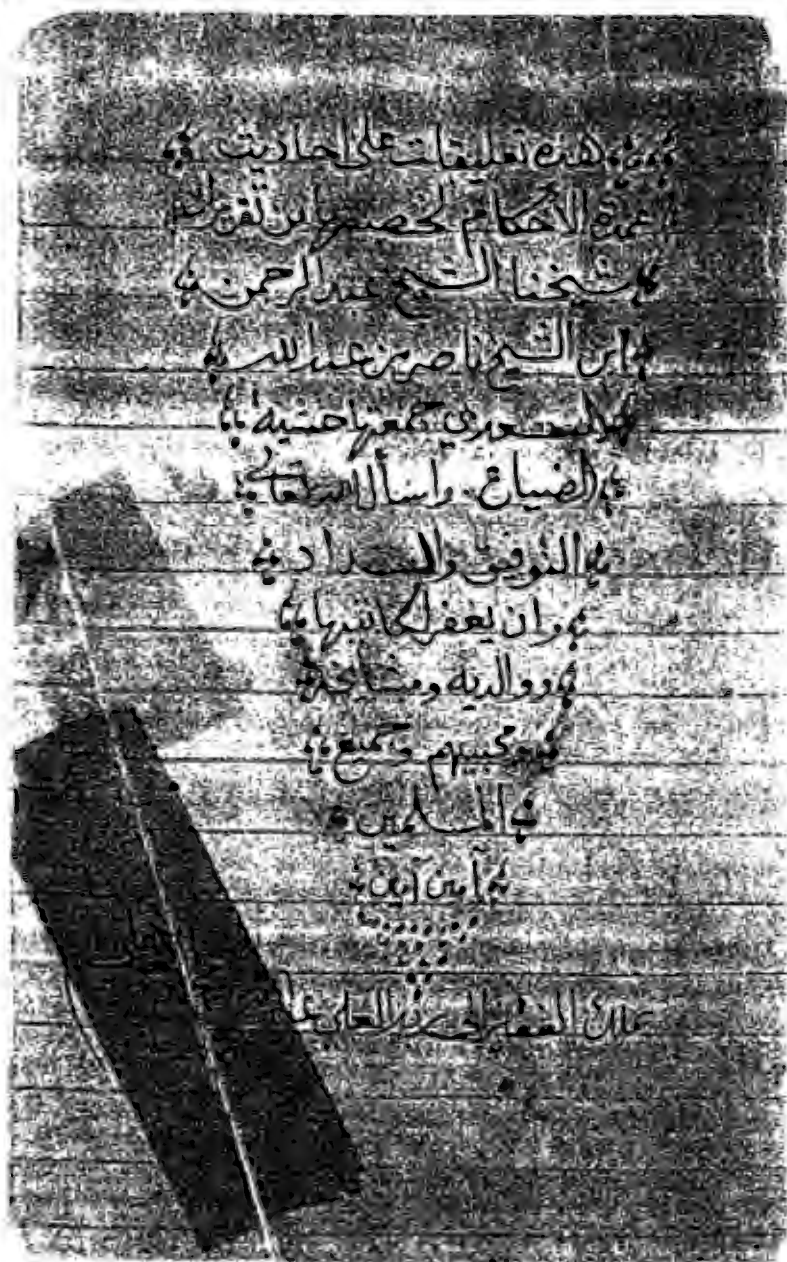 هذه تعليقات على احاديث
عمدة الأحكام لخصتها من تقرير
شيخنا الشيخ عبد الرحمن
ابن الشيخ ناصر بن عبد الله
السعدي جمعتها خشية
الضياع. واسأل الله تعالى
التوفيق والسداد
وان يغفر لكاتبها
ووالديه ومشايخه
ومحبيهم وجميع
المسلمين
آمين آمين
ملك الفقير الى